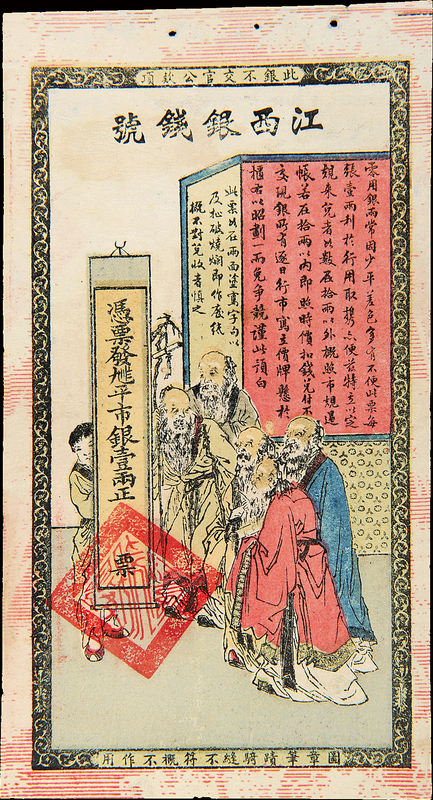 此銀不交官公款項
江西銀錢號
零用銀兩常因少平差色多有不便此票每
張壹兩利於行用取攜亦便茲特立以定
規來兌者以數在拾兩以外概照市規過
帳若在拾兩以內即照時價扣錢兌付不
交現銀所有逐日行市寫立價牌懸於
櫃右以昭劃一而免爭競謹此預白
此票如在兩面塗寫字句以
及扯破燒爛即作廢紙
概不對兌收者慎之
憑票發平市銀壹兩正
票
圖章筆蹟騎縫不符概不作用